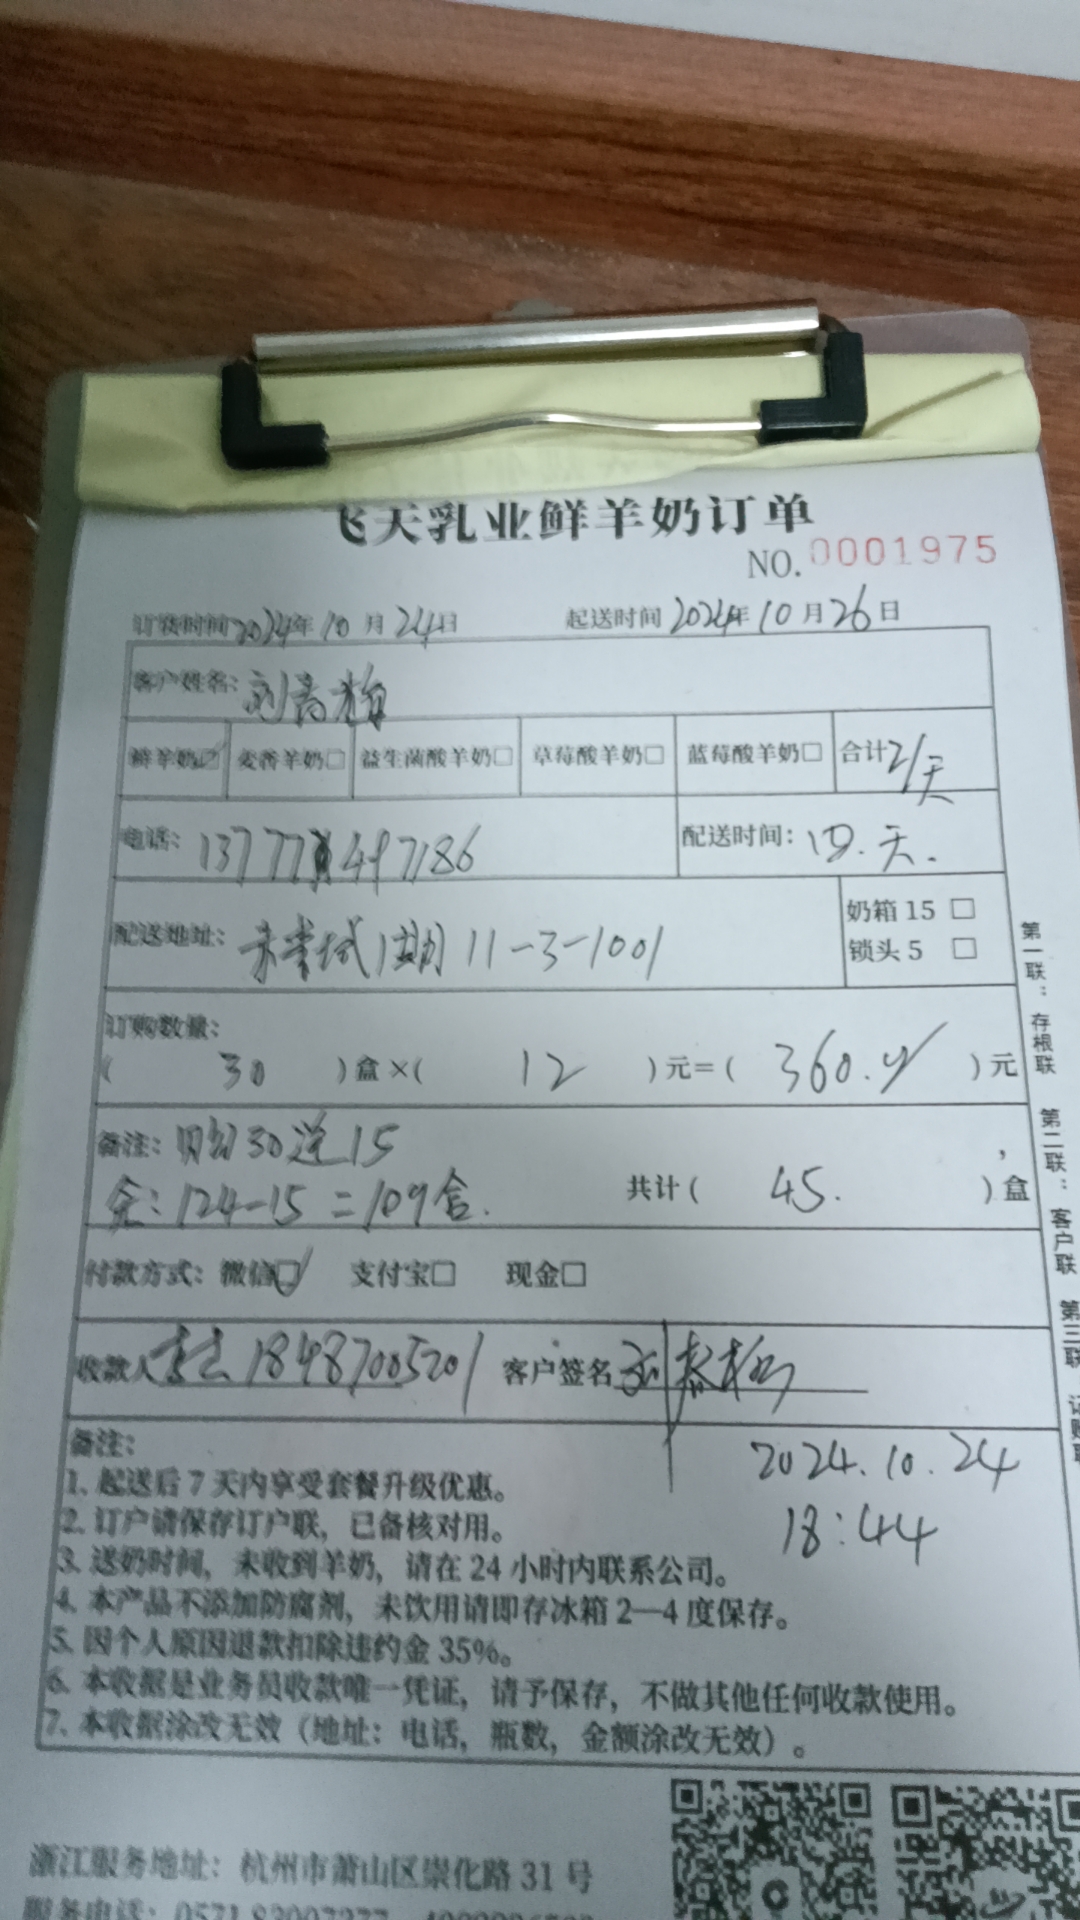 飞天乳业鲜羊奶订单
NO. 0001975
订装时间2024年10月24日 起送时间2024年10月26日
客户姓名:
鲜羊奶☑ 麦香羊奶□ 益生菌酸羊奶□ 草莓酸羊奶□ 蓝莓酸羊奶□ 合计2/天
电话: 13777 497186 配送时间: 天.
配送地址: 城1期11-3-1001 奶箱 15 □
锁头 5 □
订购数量:
( 30 )盒×( 12 )元=( 360. )元
备注: 30送15
余:124-15=109盒. 共计( 45. )盒
付款方式: 微信☑ 支付宝□ 现金□
收款人 18487005201 客户签名
备注:
2024.10.24
18:44
1. 起送后 7 天内享受套餐升级优惠。
2. 订户请保存订户联,已备核对用。
3. 送奶时间,未收到羊奶,请在 24 小时内联系公司。
4. 本产品不添加防腐剂,未饮用请即存冰箱 2—4 度保存。
5. 因个人原因退款扣除违约金 35%。
6. 本收据是业务员收款唯一凭证,请予保存,不做其他任何收款使用。
7. 本收据涂改无效(地址:电话,瓶数,金额涂改无效)。
第一联:存根联 第二联:客户联 第三联
浙江服务地址:杭州市萧山区崇化路 31 号
服务电话: